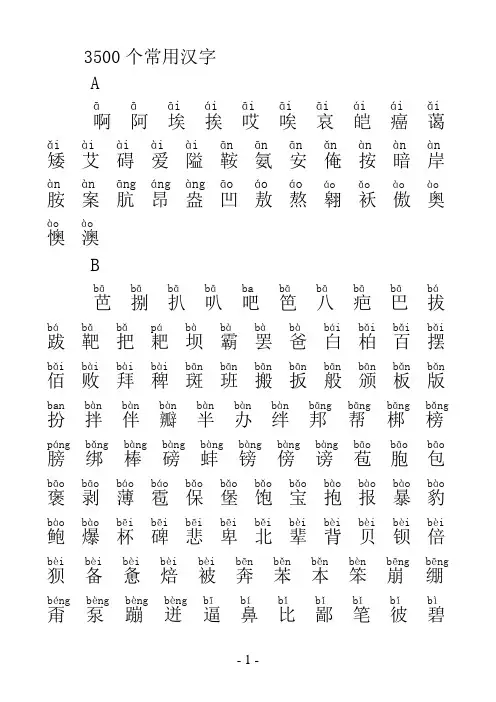 3500个常用汉字
A
ā ā āi ái āi āi āi ái ái ǎi
啊 阿 埃 挨 哎 唉 哀 皑 癌 蔼
ǎi ài ài ài ài ān ān ān ǎn àn àn àn
矮 艾 碍 爱 隘 鞍 氨 安 俺 按 暗 岸
àn àn āng áng àng āo áo áo áo ǎo ào ào
胺 案 肮 昂 盎 凹 敖 熬 翱 袄 傲 奥
ào ào
懊 澳
B
bā bā bā bā ba bā bā bā bā bá
芭 捌 扒 叭 吧 笆 八 疤 巴 拔
bá bǎ bǎ pá bà bà bà bà bái bǎi bǎi bǎi
跋 靶 把 耙 坝 霸 罢 爸 白 柏 百 摆
bǎi bài bài bài bān bān bān bān bān bān bǎn bǎn
佰 败 拜 稗 斑 班 搬 扳 般 颁 板 版
ban bàn bàn bàn bàn bàn bàn bāng bāng bāng bǎng
扮 拌 伴 瓣 半 办 绊 邦 帮 梆 榜
páng bǎng bàng bàng bàng bàng bàng bàng bāo bāo bāo
膀 绑 棒 磅 蚌 镑 傍 谤 苞 胞 包
bāo bāo báo báo bǎo bǎo bǎo bǎo bào bào bào bào
褒 剥 薄 雹 保 堡 饱 宝 抱 报 暴 豹
bào bào bēi bēi bēi bēi běi bèi bèi bèi bèi bèi
鲍 爆 杯 碑 悲 卑 北 辈 背 贝 钡 倍
bèi bèi bèi bèi bèi bēn běn běn bèn bēng bēng
狈 备 惫 焙 被 奔 苯 本 笨 崩 绷
béng bèng bèng bèng bī bí bǐ bǐ bǐ bǐ bì
甭 泵 蹦 迸 逼 鼻 比 鄙 笔 彼 碧
- 1 -